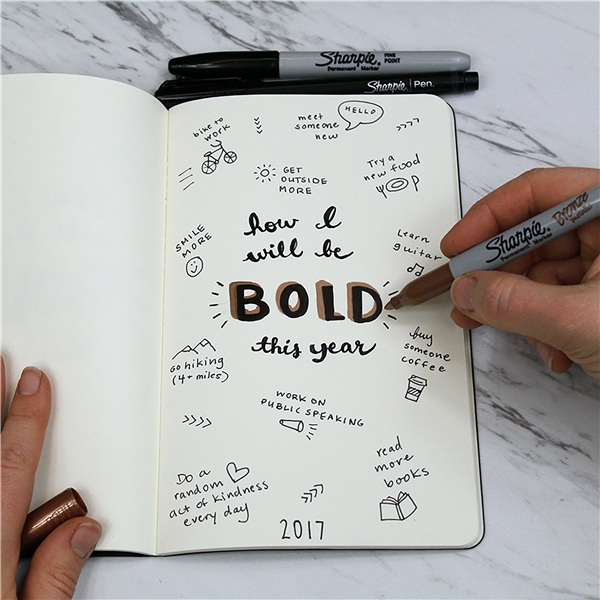 Sharpie. FINE POINT
Permanent Marker
Sharpie. Pen.
bike to
work
meet
someone
new
HELLO
GET
OUTSIDE
MORE
Try a
new food
SMILE
MORE
how I
will be
BOLD
this year
Learn
guitar
Sharpie.
Permanent Marker
Bronze
go hiking
(4+ miles)
buy
someone
coffee
WORK ON
PUBLIC SPEAKING
Do a
random
act of kindness
every day
read
more
books
2017